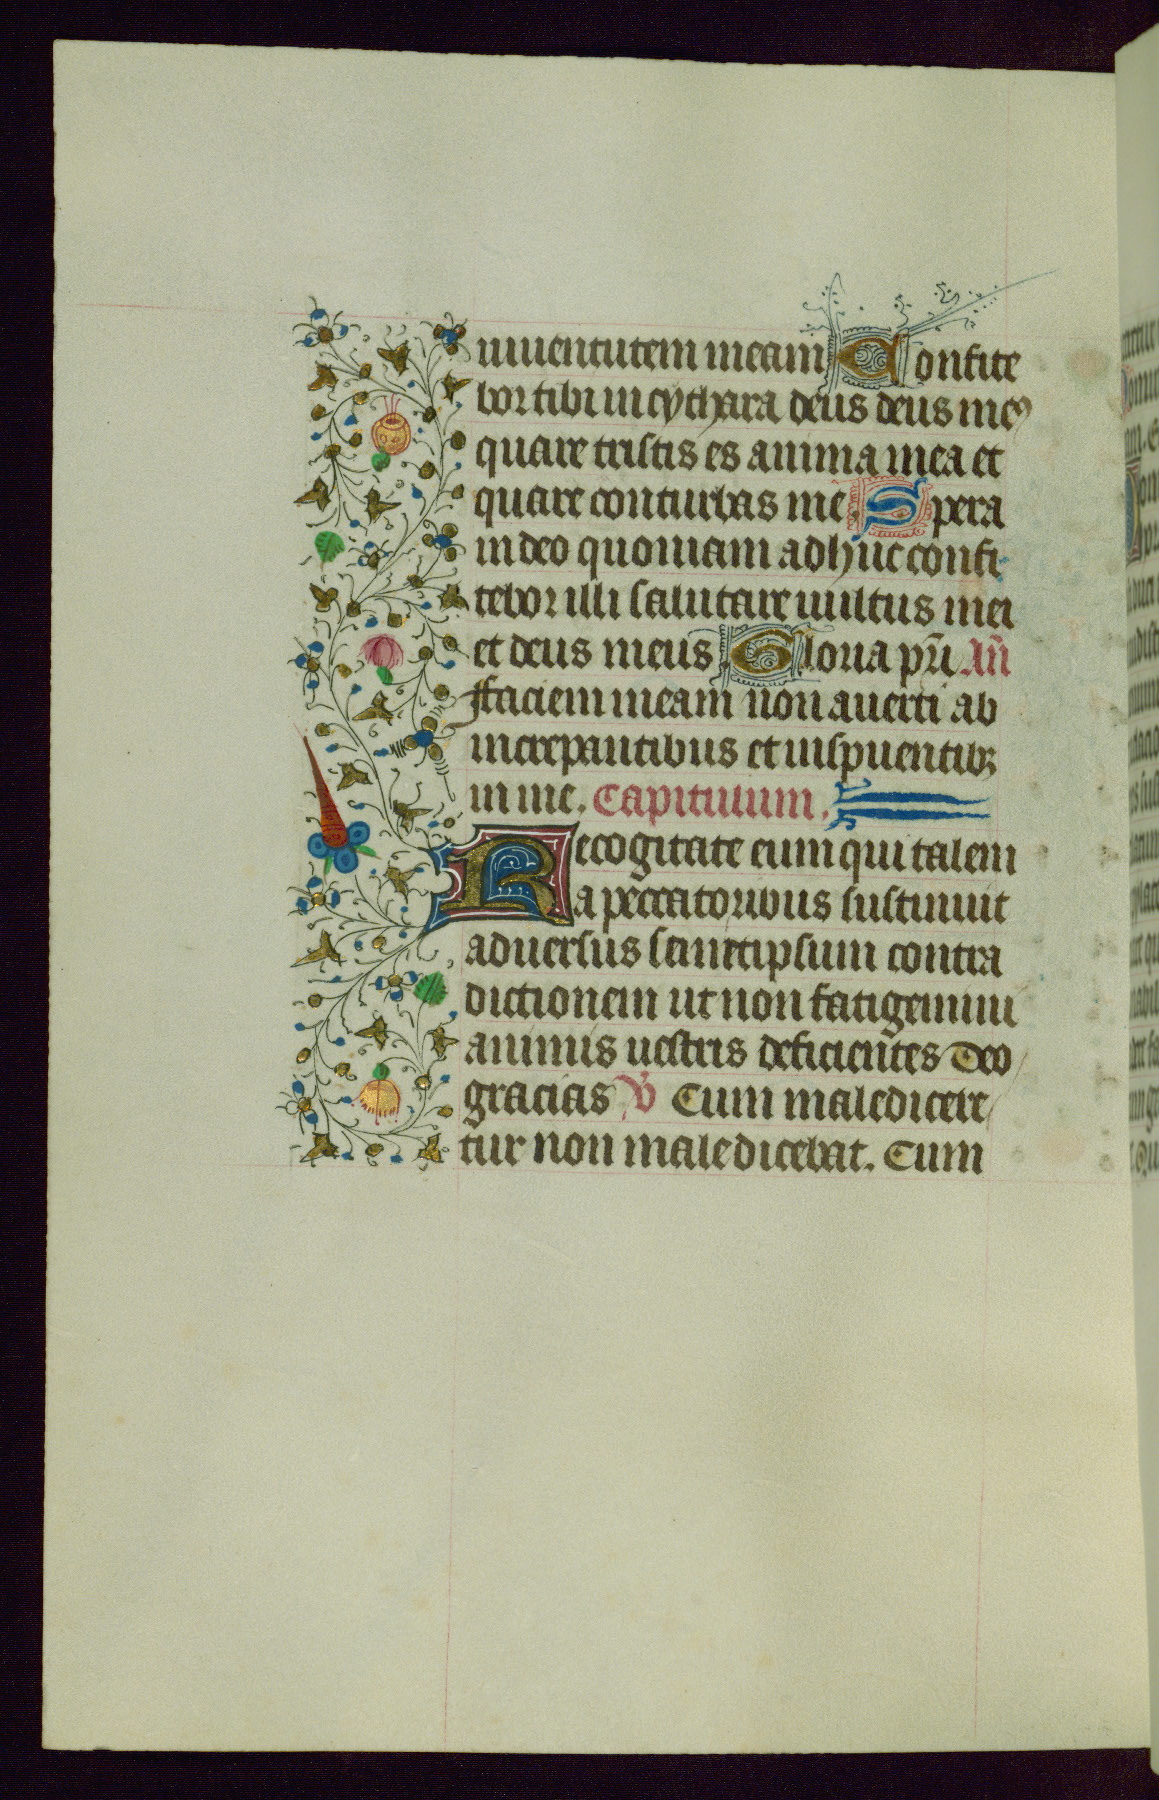 iuuentutem meam Confite
bor tibi in cythara deus deus meꝰ
quare tristis es anima mea et
quare conturbas me. Spera
in deo quoniam adhuc confi
tebor illi salutare uultus mei
et deus meus. Gloria pr̄i An̄
Faciem meam non auerti ab
increpantibus et inspuentibꝫ
in me. Capitulum.
Recogitate eum qui talem
a peccatoribus sustinuit
aduersus semetipsum contra
dictionem ut non fatigemini
animis uestris deficientes Deo
gracias ℣ Cum maledicere
tur non maledicebat. Cum